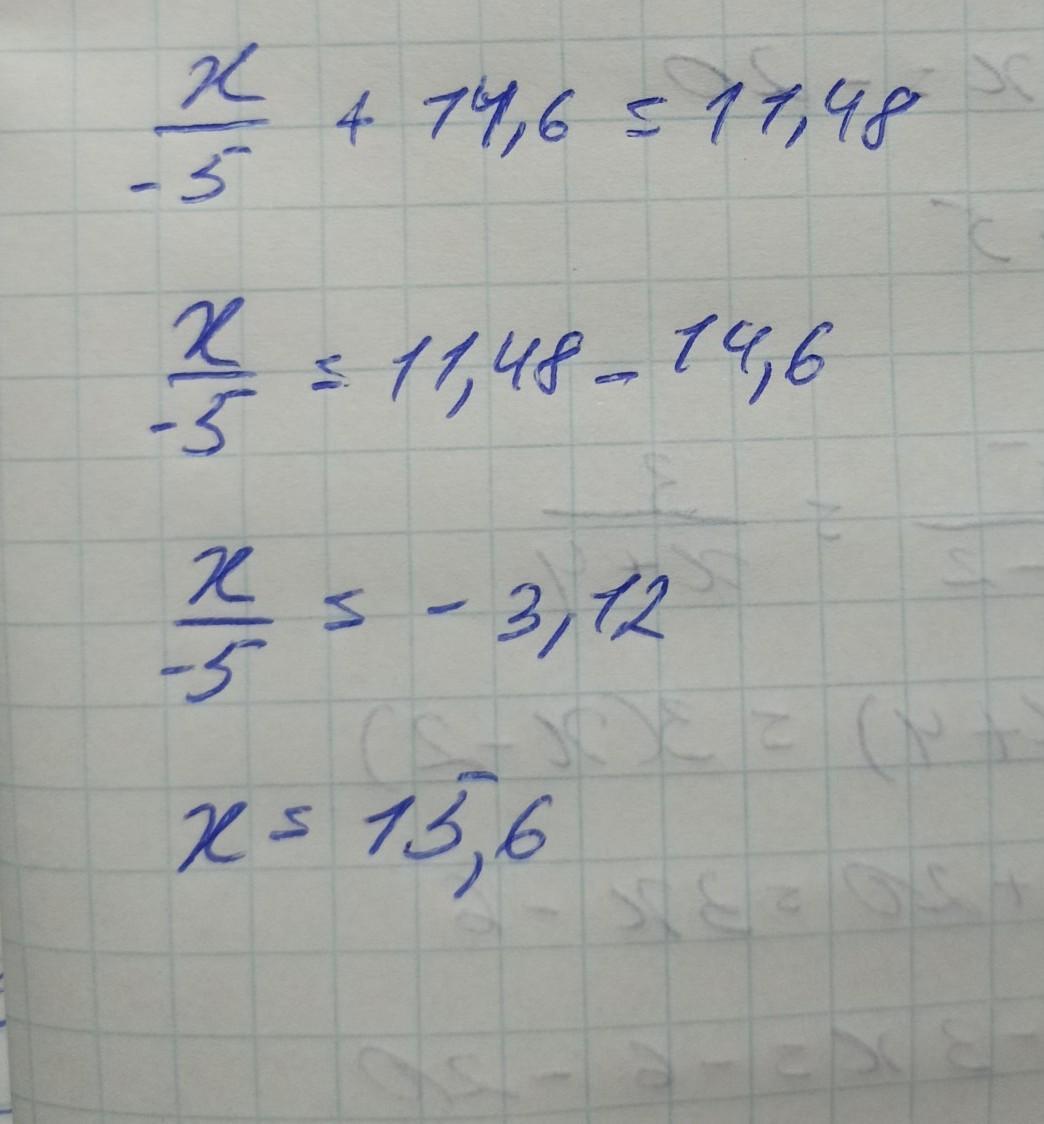 x/-5 + 14,6 = 11,48
x/-5 = 11,48 - 14,6
x/-5 = - 3,12
x = 15,6